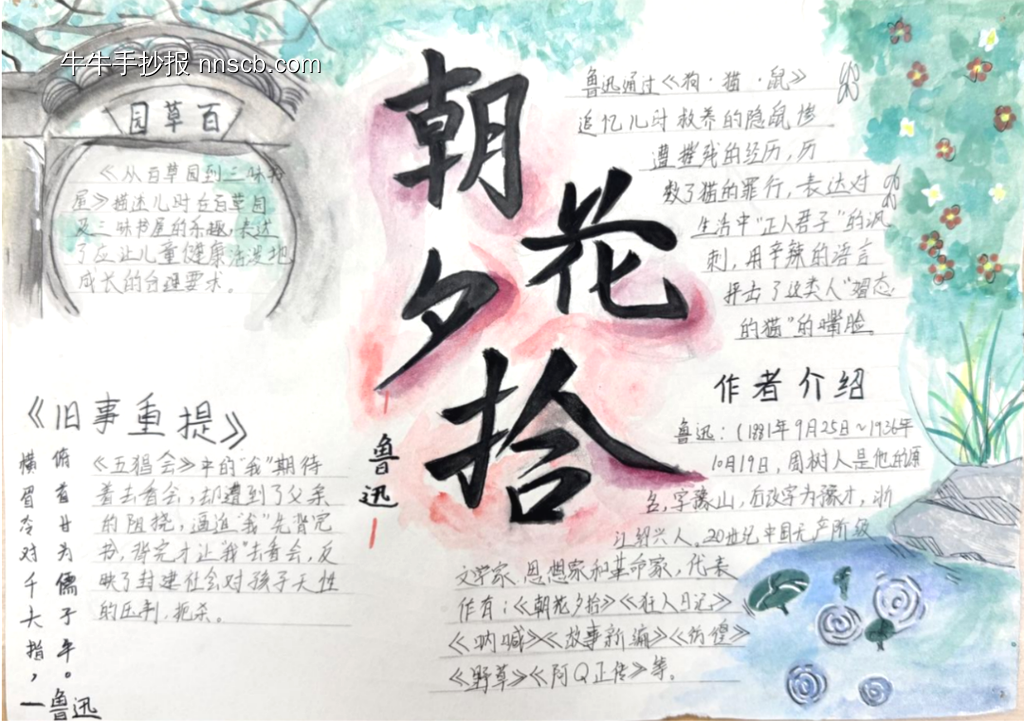 牛牛手抄报 nnscb.com
园草百
《从百草园到三味书
屋》描述儿时在百草园
及三味书屋的乐趣,表达
了应让儿童健康活泼地
成长的合理要求。
朝花夕拾
鲁迅
鲁迅通过《狗·猫·鼠》
追忆儿时救养的隐鼠惨
遭摧残的经历,历
数了猫的罪行,表达对
生活中“正人君子”的讽
刺,用辛辣的语言
抨击了这类人“媚态
的猫”的嘴脸。
作者介绍
鲁迅:(1881年9月25日~1936年
10月19日,周树人是他的
名,字豫山,后改字为豫才,浙
江绍兴人。20世纪中国无产阶级
文学家、思想家和革命家,代表
作有:《朝花夕拾》《狂人日记》
《呐喊》《故事新编》《彷徨》
《野草》《阿Q正传》等。
《旧事重提》
《五猖会》中的“我”期待
着去看会,却遭到了父亲
的阻挠,逼迫“我”先背完
书,背完才让“我”去看会,反
映了封建社会对孩子天性
的压制,扼杀。
横眉冷对千夫指,
俯首甘为儒子牛。
一鲁迅